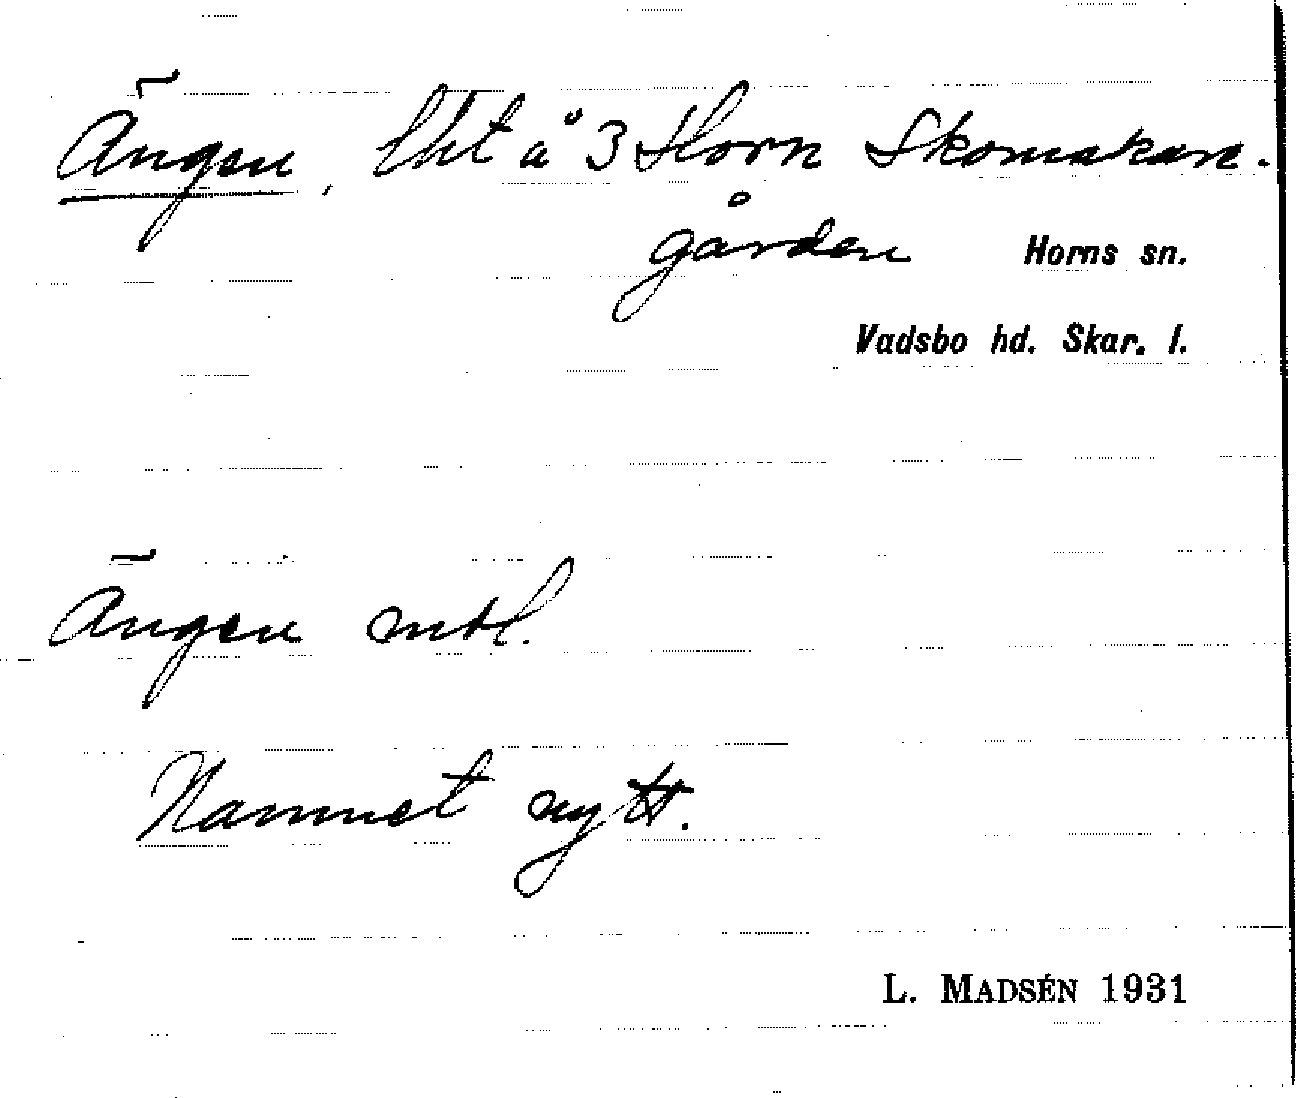 Ängen, lht å 3 Horn Skomakare-
gården Horns sn.
Vadsbo hd. Skar. l.
Ängen mtl.
Namnet nytt.
L. MADSÉN 1931